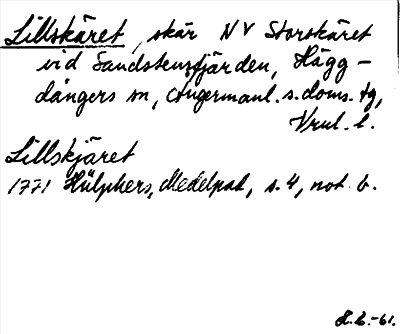 Lillskäret, skär NV Storskäret
vid Sandstensfjärden, Hägg-
dångers sn, Ångermanl. s. doms. tg,
Vrnl. l.
Lillskjäret
1771 Hülphers, Medelpad, s. 4, not b.
H.L.-61.